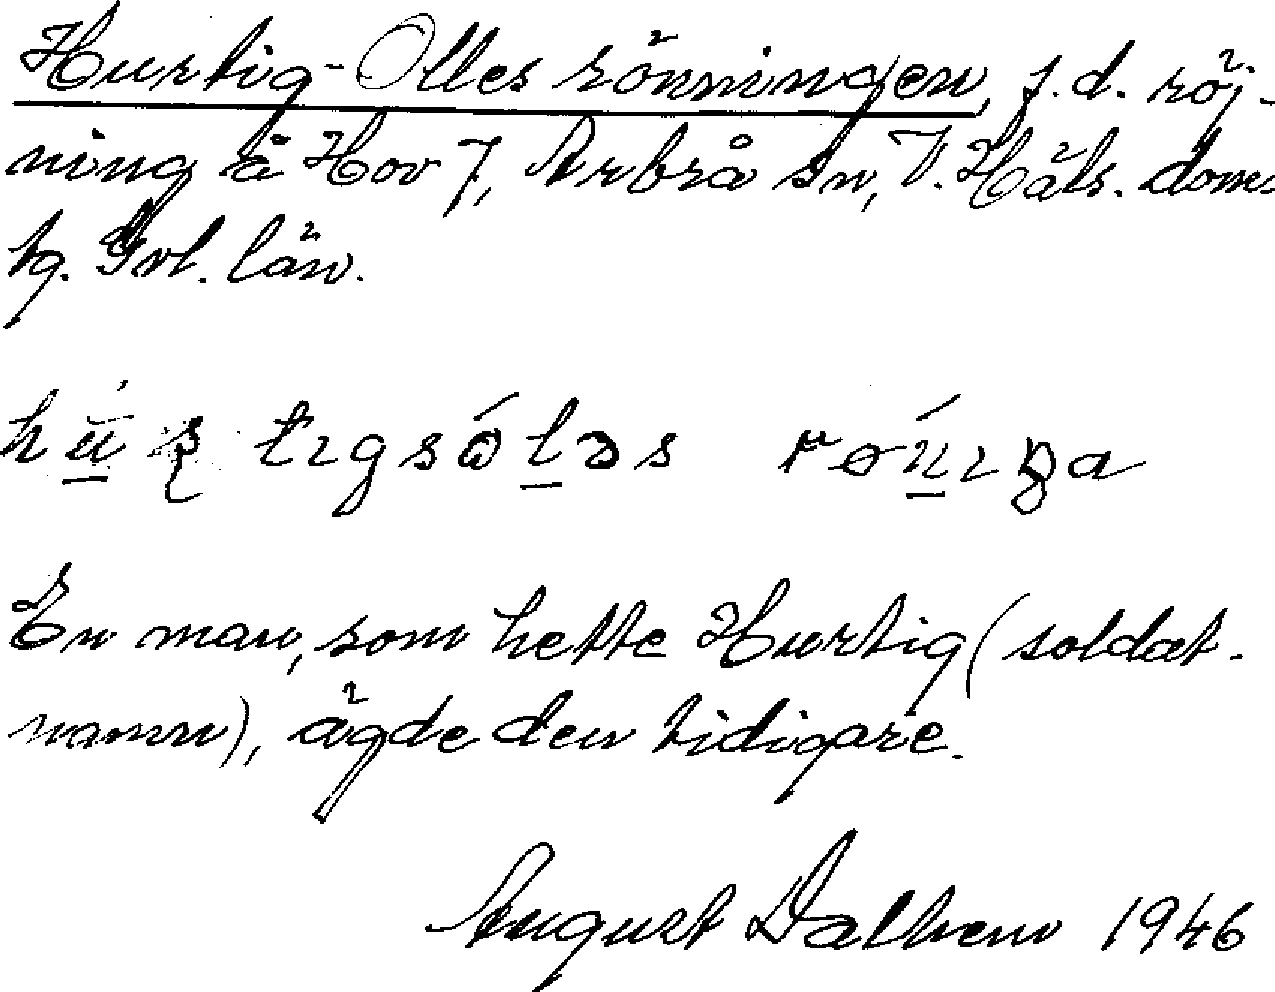 Hurtig-Olles rönningen, f.d. röj-
ning å Hov 7, Arbrå sn, V. Häls. doms
tg. Gvl. län.
En man, som hette Hurtig (soldat-
namn), ägde den tidigare.
August Dalhem 1946